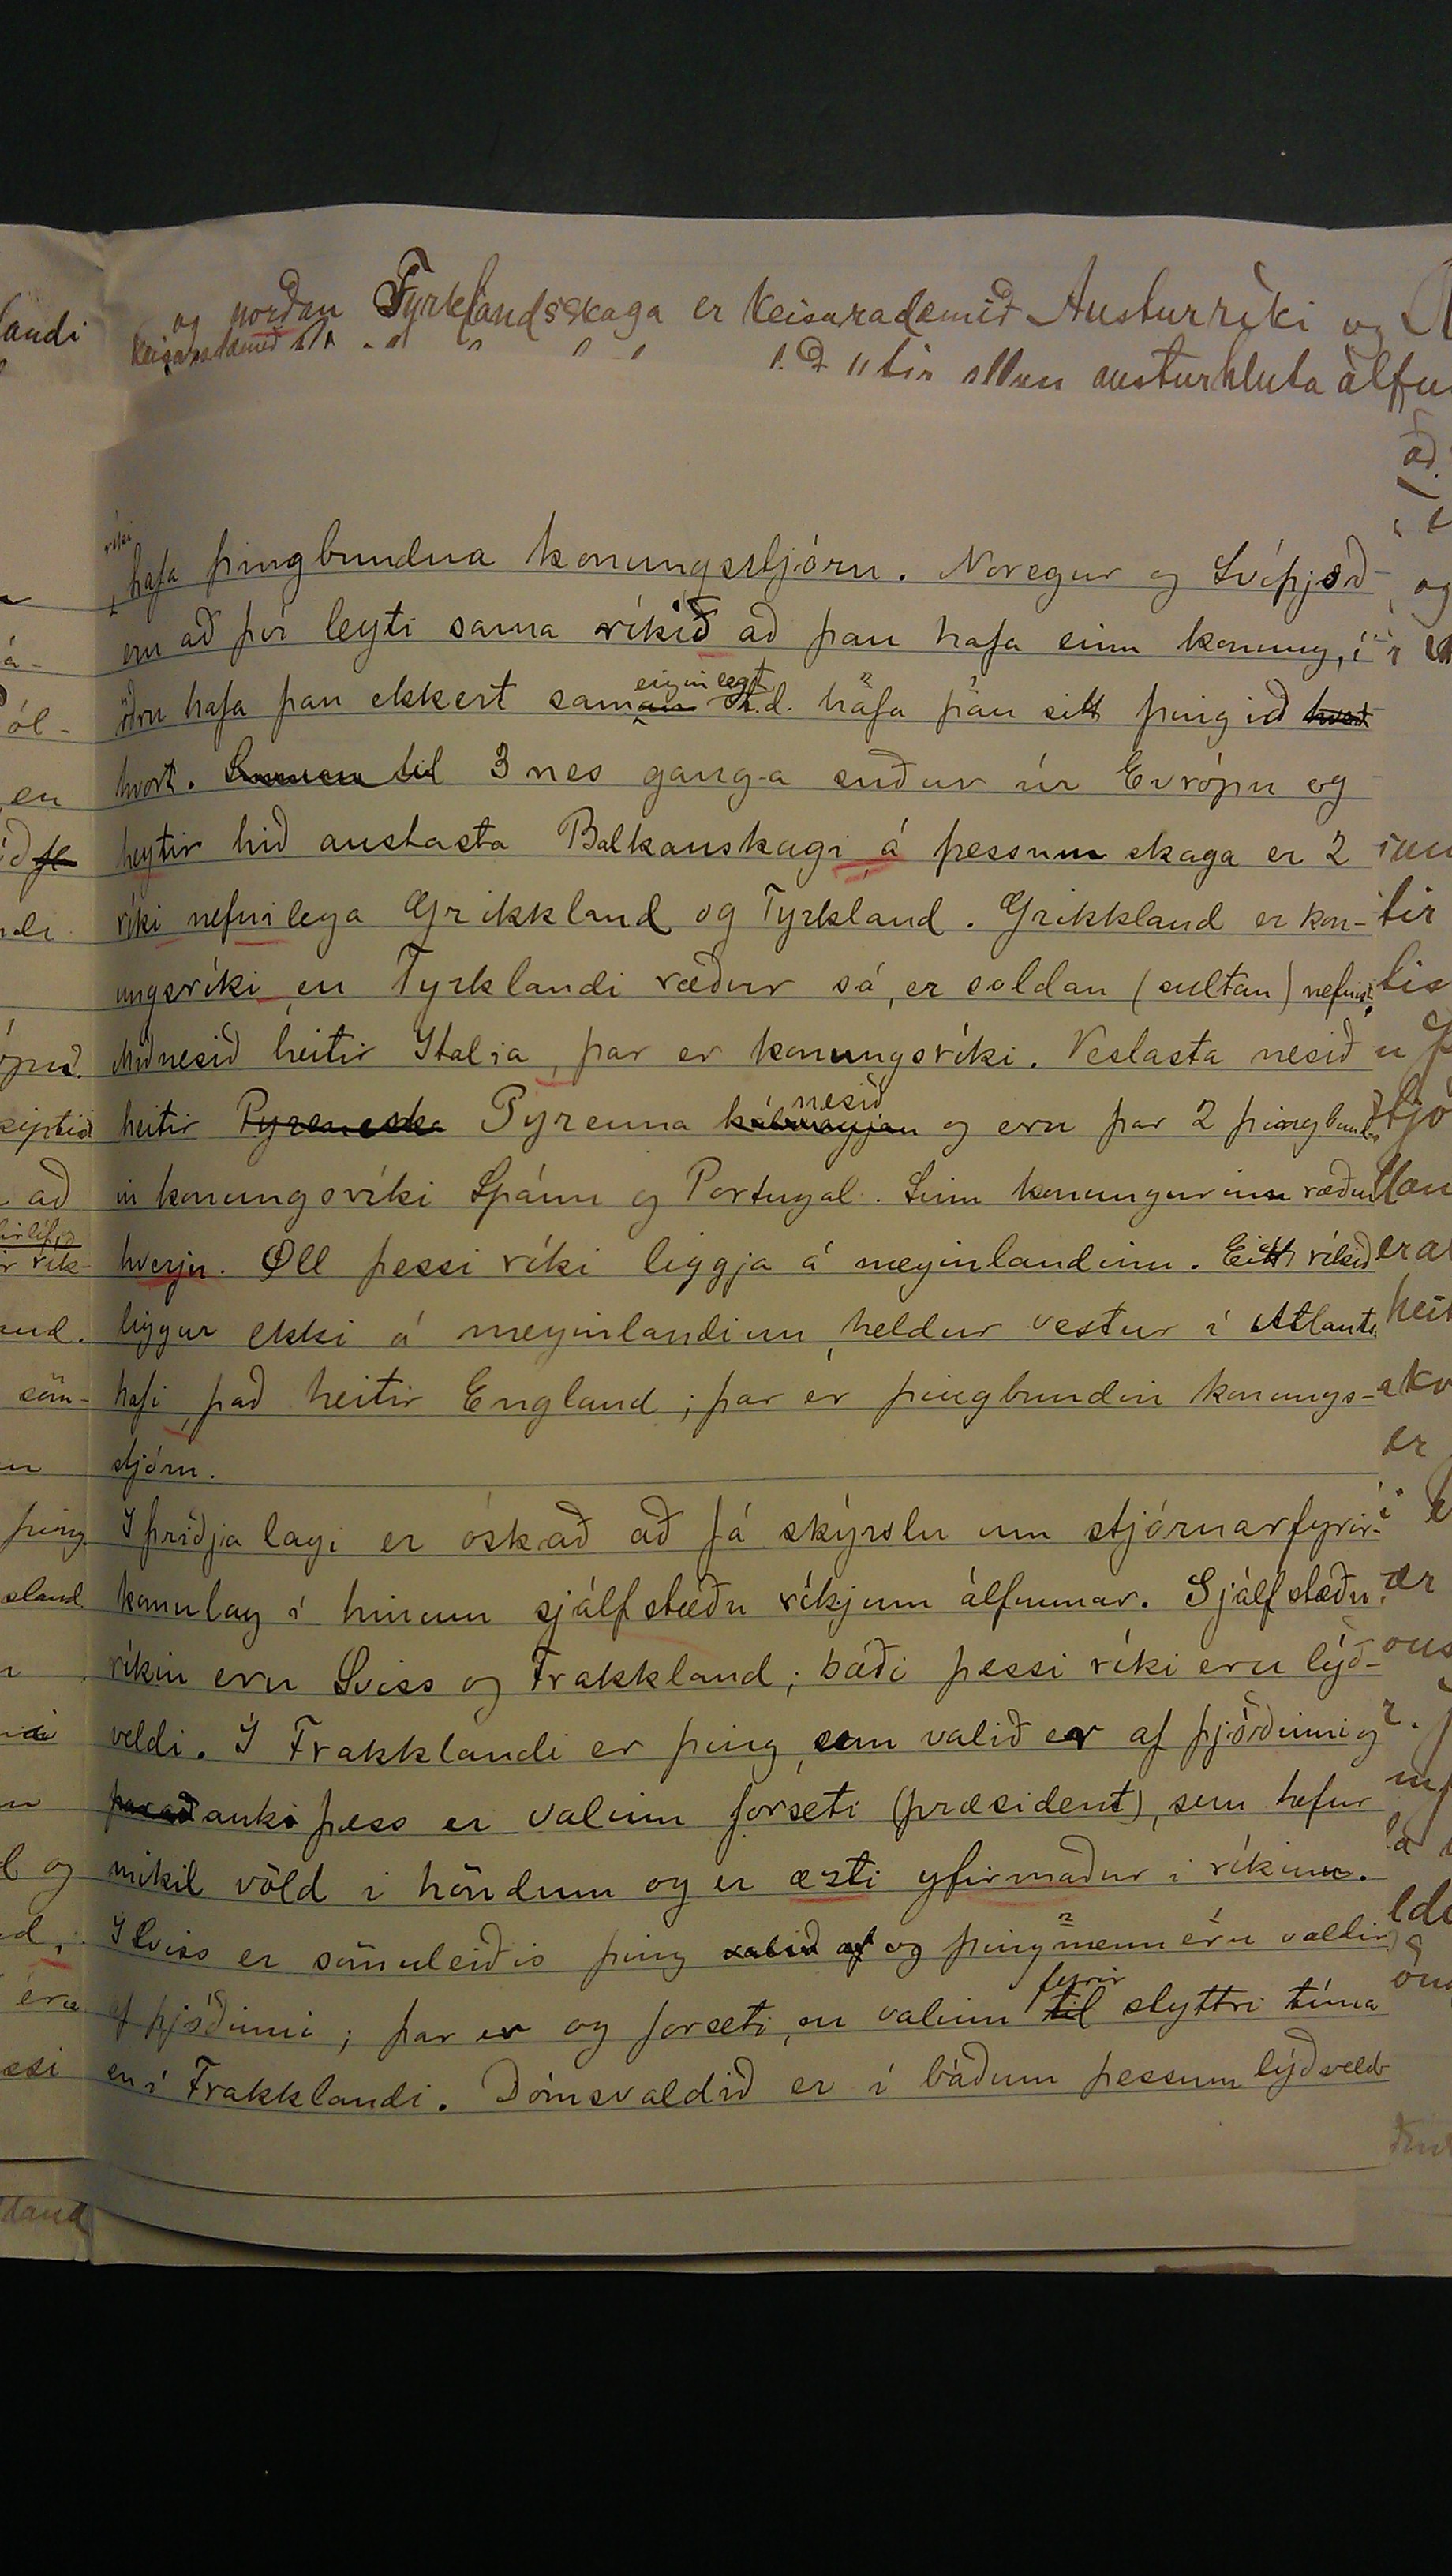 og norðan Tyrklandsskaga er keisaradæmið Austurríki og
keisaradæmið
tir allan austurhluta álfu
ríki
hafa þingbundna konungsstjórn. Noregur og Svíþjóð
eru að því leyti sama ríkið að þau hafa einn konung, í
eiginlegt
öðru hafa þau ekkert saman t.d. hafa þau sitt þingið hvert
hvort. Sunnan til 3 nes ganga suður úr Evrópu og
heytir hið austasta Balkanskagi á þessum skaga er 2
ríki nefnilega Grikkland og Tyrkland. Grikkland er kon-
ungsríki en Tyrklandi ræður sá, er soldan (sultan) nefnist.
Miðnesið heitir Italia, þar er konungsríki. Vestasta nesið
nesið
heitir Pyreneska Pyrenna og eru þar 2 þingbund
in konungsríki Spánn og Portugal. Sinn konungurinn ræður
hverju. Øll þessi ríki liggja á meginlandinu. Eitt ríkið
liggur ekki á meginlandinu, heldur vestur í Atlants
hafi, það heitir England; þar er þingbundin konungs-
stjórn.
I þriðja lagi er óskað að fá skýrslu um stjórnarfyrir-
komulag í hinum sjálfstæðu ríkjum álfunnar. Sjálfstæðu
ríkin eru Sviss og Frakkland; bæði þessi ríki eru lýð-
veldi. Í Frakklandi er þing, sem valið er af þjóðinni og
auks þess er valinn forseti (præsident), sem hefur
mikil völd í höndum og er æzti yfirmaður í ríkinu.
I Sviss er sömuleiðis þing valið af og þingmenn eru valdir
fyrir
af þjóðinni; þar er og forseti, en valinn til styttri tíma
en í Frakklandi. Dómsvaldið er í báðum þessum lýðveld